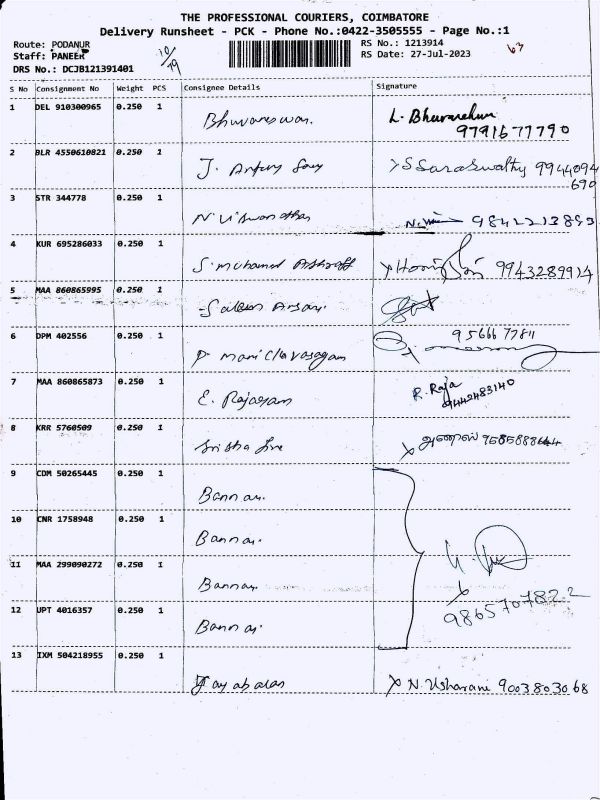 THE PROFESSIONAL COURIERS, COIMBATORE
Delivery Runsheet - PCK - Phone No.:0422-3505555 - Page No.:1
Route: PODANUR
RS No.: 1213914
63
Staff: PANEER
10/19
RS Date: 27-Jul-2023
DRS No.: DCJB121391401
S No Consignment No Weight PCS Consignee Details Signature
1 DEL 910300965 0.250 1 Bhuvaneswari. L. Bhuvaneshwari
9791677790
2 BLR 4550610821 0.250 1 J. Antony X S Saraswathy 9944094
690
3 STR 344778 0.250 1 N. Viswanathan 9842213893
4 KUR 695286033 0.250 1 S. mohamed Ashraff 9943289914
5 MAA 860865995 0.250 1 Saleem Ansari
6 DPM 402556 0.250 1 P. manickavasagam 9566677811
7 MAA 860865873 0.250 1 E. Rajaram R. Raja
9442483140
8 KRR 5760509 0.250 1 X 9585888644
9 CDM 50265445 0.250 1 Bannari.
10 CNR 1758948 0.250 1 Bannari.
11 MAA 299090272 0.250 1 Bannari
X
12 UPT 4016357 0.250 1 Bannari 9865707822
13 IXM 504218955 0.250 1 Jayabalan X N. Usharani 9003803068